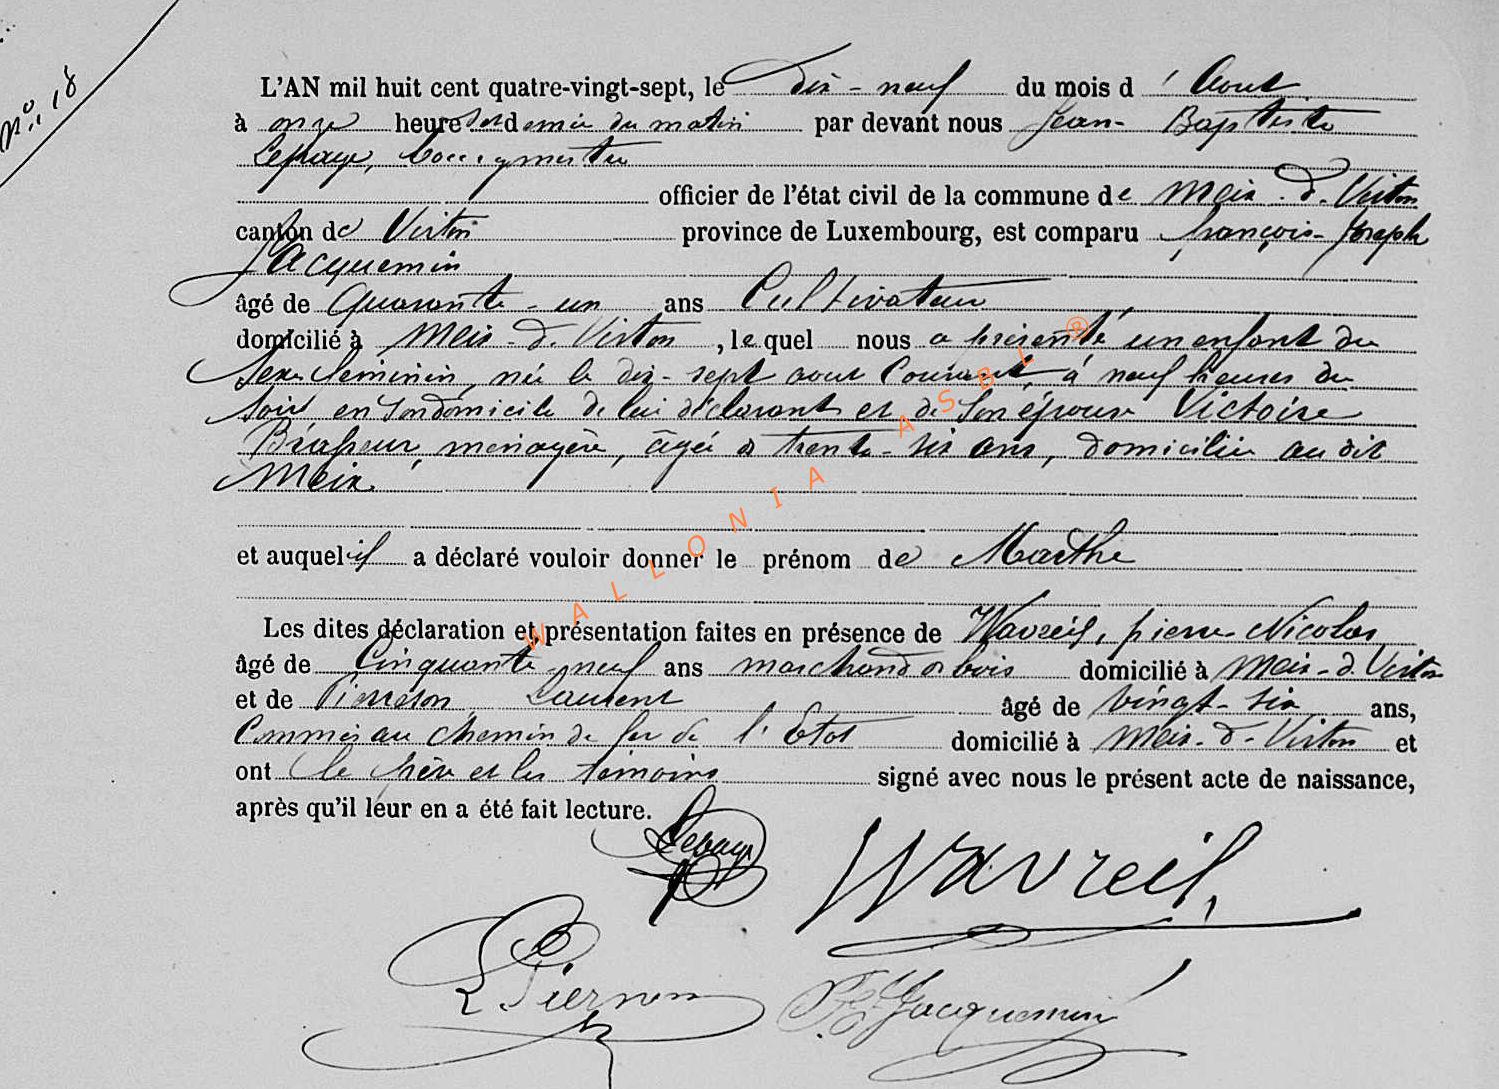 N° 18
L'AN mil huit cent quatre-vingt-sept, le dix-neuf du mois d'Aout
à onze heures et demie du matin par devant nous Jean-Baptiste
Lepage, bourgmestre
officier de l'état civil de la commune de Meix-d.-Virton
canton de Virton province de Luxembourg, est comparu françois-Joseph
Jacquemin
âgé de Quarante-un ans Cultivateur
domicilié à Meix-d.-Virton, le quel nous a présenté un enfant du
Sexe féminin, née le dix-sept aout Courant, à neuf heures du
Soir en Son domicile de lui déclarant et de Son épouse Victoire
ménagère, âgée de trente-six ans, domiciliée au dit
Meix
et auquel il a déclaré vouloir donner le prénom de Marthe
Les dites déclaration et présentation faites en présence de Wavreil, pierre-Nicolas
âgé de Cinquante-neuf ans marchand de bois domicilié à Meix-d.-Virton
et de Laurent âgé de vingt-six ans,
Commis au chemin de fer de l'Etat domicilié à Meix-d.-Virton et
ont le père et les témoins signé avec nous le présent acte de naissance,
après qu'il leur en a été fait lecture.
Lepage Wavreil
L Jacquemin
WALLONIA ASBL ®